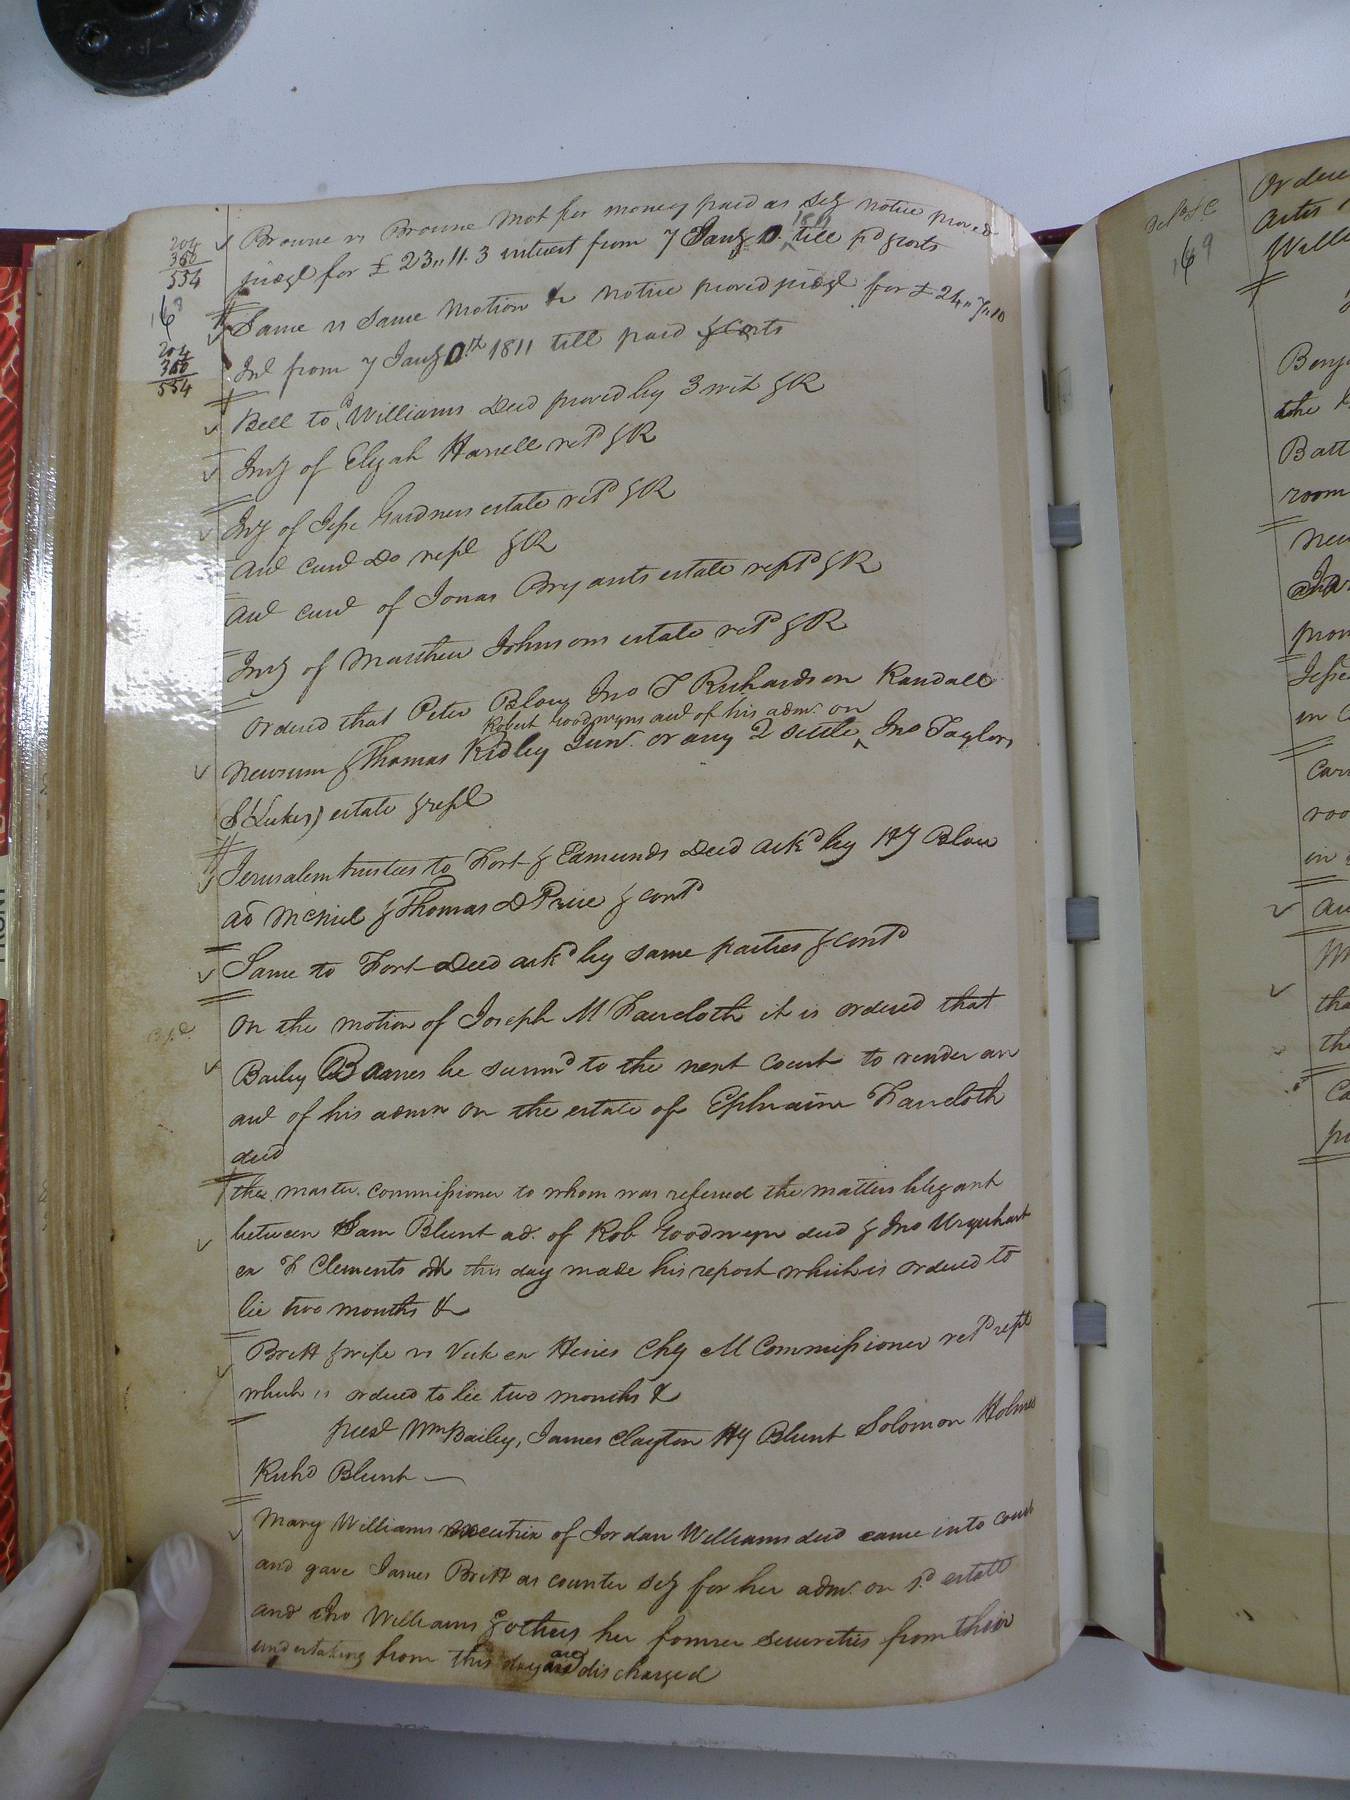 Browne vs Browne Mot for money paid as Sey notice proved
204
350
554
judgt for £ 23,, 11. 3 interest from 7 Jany 1811 till pd & costs
168
Same vs Same Motion &c notice proved judgt for £ 24,, 7,, 10
204
350
554
Int from 7 Jany 1811 till paid & costs
Bell to Williams Deed proved by 3 wit & R
Invy of Elijah Harrell retd & R
Invy of Jesse Gardners estate retd & R
Aut curt Do rept & R
Aut curt of Jonas Bryants estate reptd & R
Invy of Matthew Johnsons estate retd & R
Ordered that Peter Blow Jno T Richardson Randall
Robert Goodwyns aut of his adm. on
Newsum & Thomas Ridley Junr. or any 2 settle Jno Taylors
S(Lukes) estate & rept
Jerusalem trustees to Fort & Edmunds Deed ackd by Hy Blow
AS McNiel & Thomas D Price & contd
Same to Fort Deed ackd by same parties & contd
Copd.
On the motion of Joseph M Faircloth it is ordered that
Bailey Barnes be summd to the next Court to render an
aut of his admn on the estate of Ephraim Faircloth
decd
the master commissioner to whom was refered the matters litigant
between Sam Blunt ad. of Rob Goodwyn decd & Jno Urquhart
ex F Clements this day made his report which is ordered to
lie two months &c
Britt & wife vs Vick ex Hines Chy M Commissioner retd rept
which is ordered to lie two months &
prest Wm Bailey, James Clayton Hy Blunt Solomon Holmes
Richd Blunt
Mary Williams executrix of Jordan Williams decd came into court
and gave James Britt as counter sey for her adm. on sd estate
and Jno Williams & others her former securities from their
undertaking from this day are discharged
Septr Ct
169
Ordere
Wille
Benj
the
Batt
room
and
prov
Jesse
in C
Car
roo
in
au
tha
the
Ca